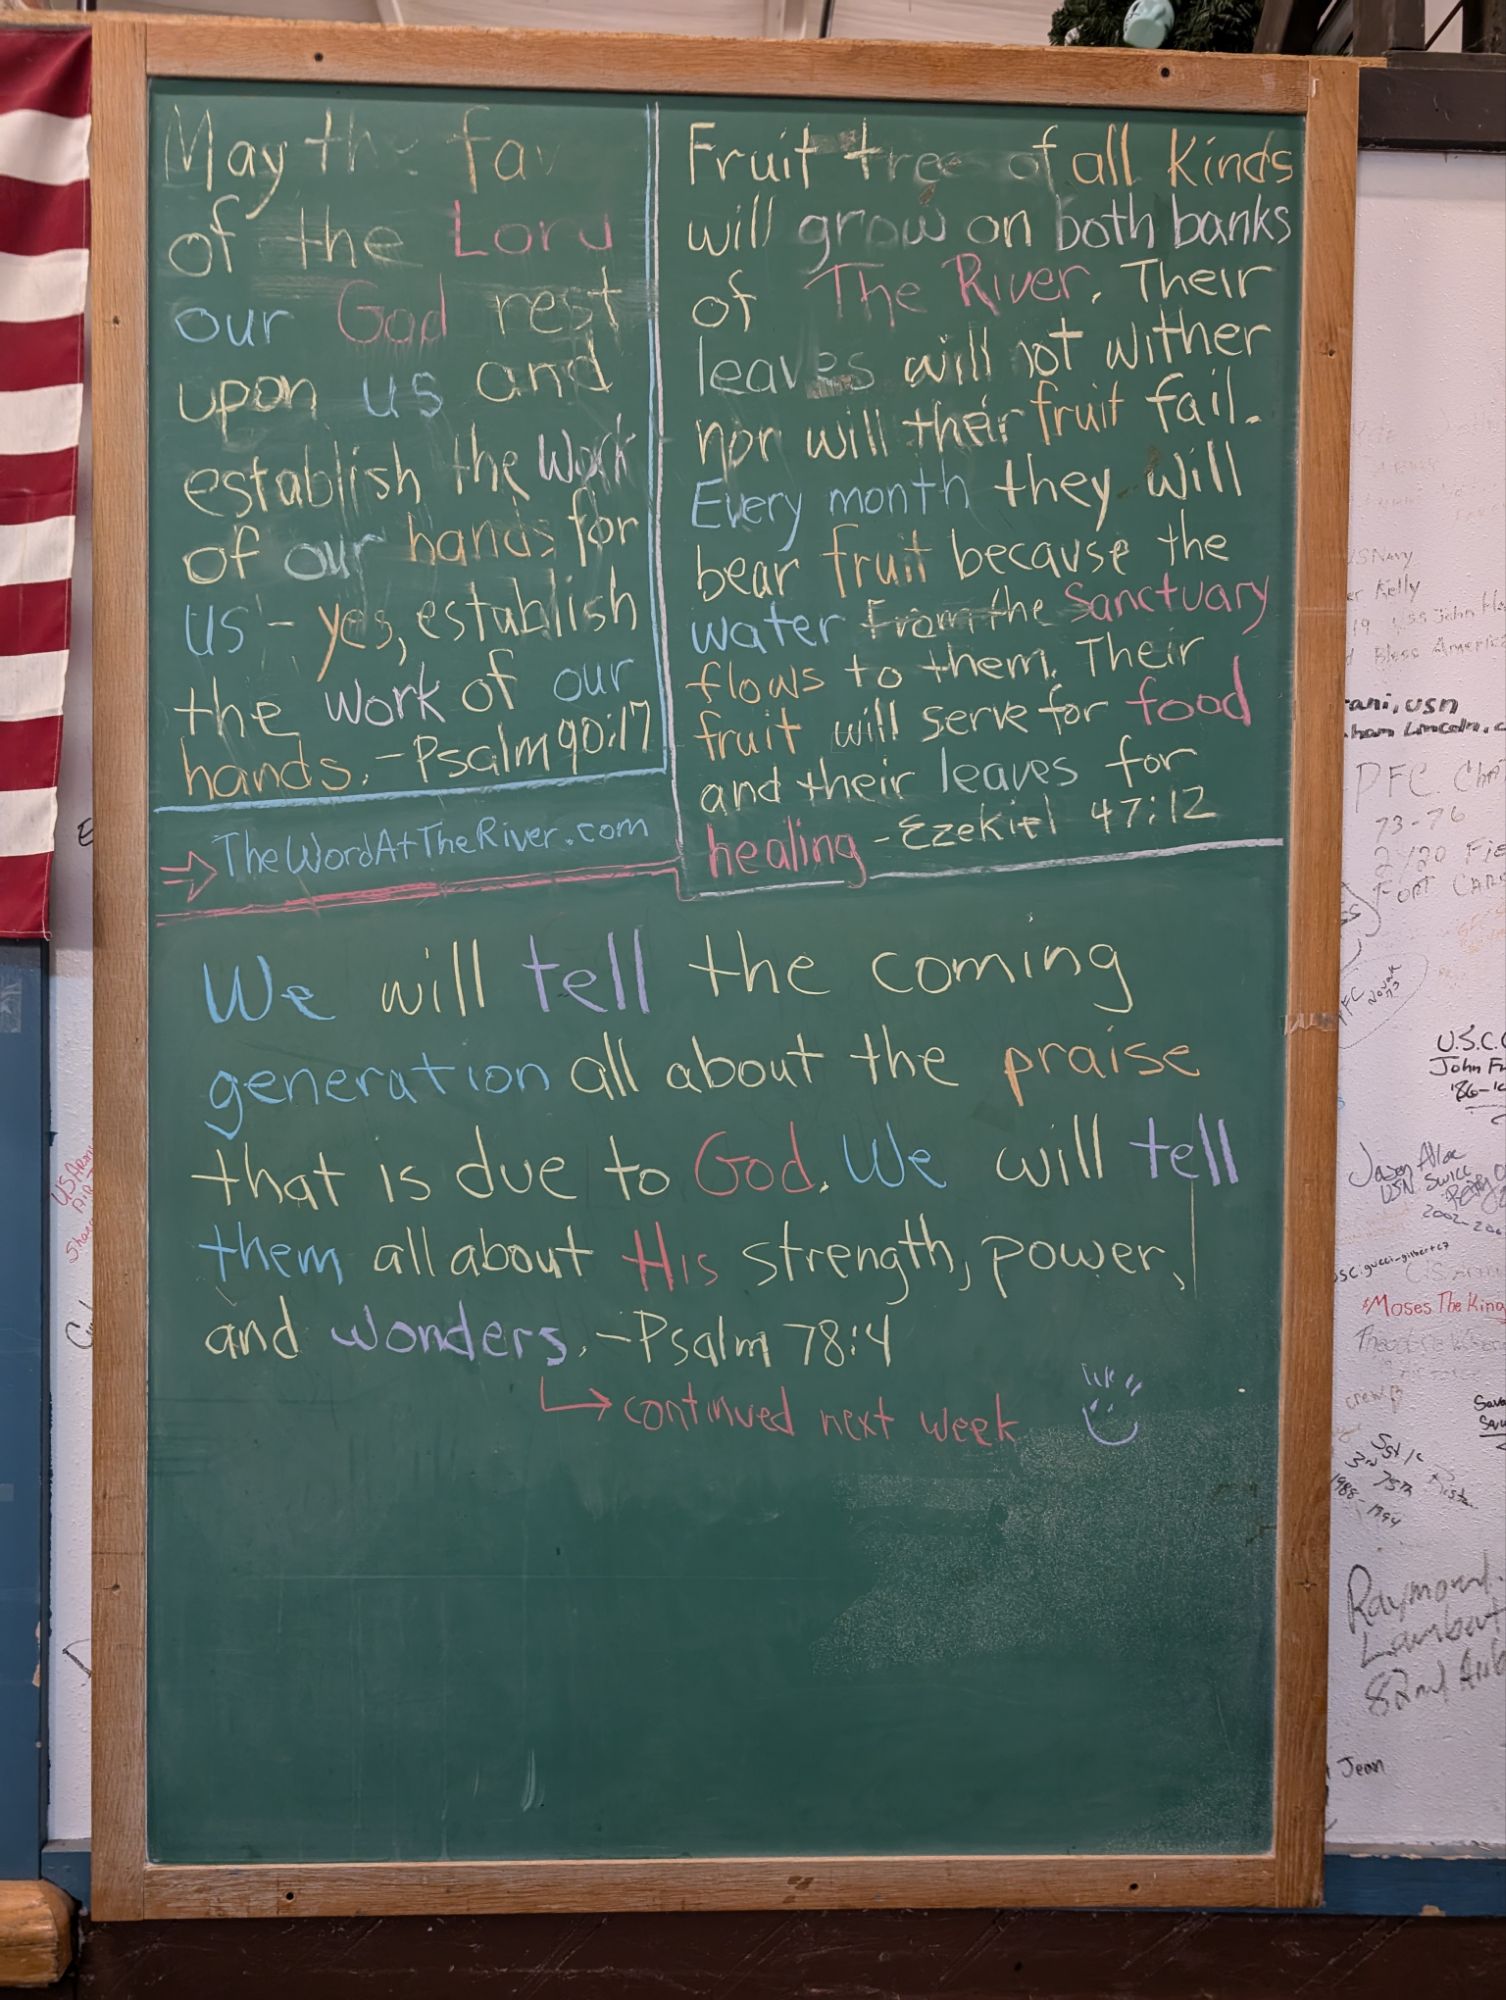 May the fav
of the Lord
our God rest
upon us and
establish the work
of our hands for
us - yes, establish
the work of our
hands. - Psalm 90:17
TheWordAtTheRiver.com
Fruit tree of all kinds
will grow on both banks
of The River. Their
leaves will not wither
nor will their fruit fail.
Every month they will
bear fruit because the
water from the Sanctuary
flows to them. Their
fruit will serve for food
and their leaves for
healing - Ezekiel 47:12
We will tell the coming
generation all about the praise
that is due to God. We will tell
them all about His strength, power,
and wonders. - Psalm 78:4
continued next week
USNavy
Kelly
USS John
Bless America
usn
Lincoln
PFC. Chr
73-76
2/20 Fie
Fort Cars
PFC Novak
U.S.C.
John
'86-
Jason
USN SWICC
2002-200
Moses The King
crew
75th
1988-1994
Raymond
Lambert
82nd
Jean